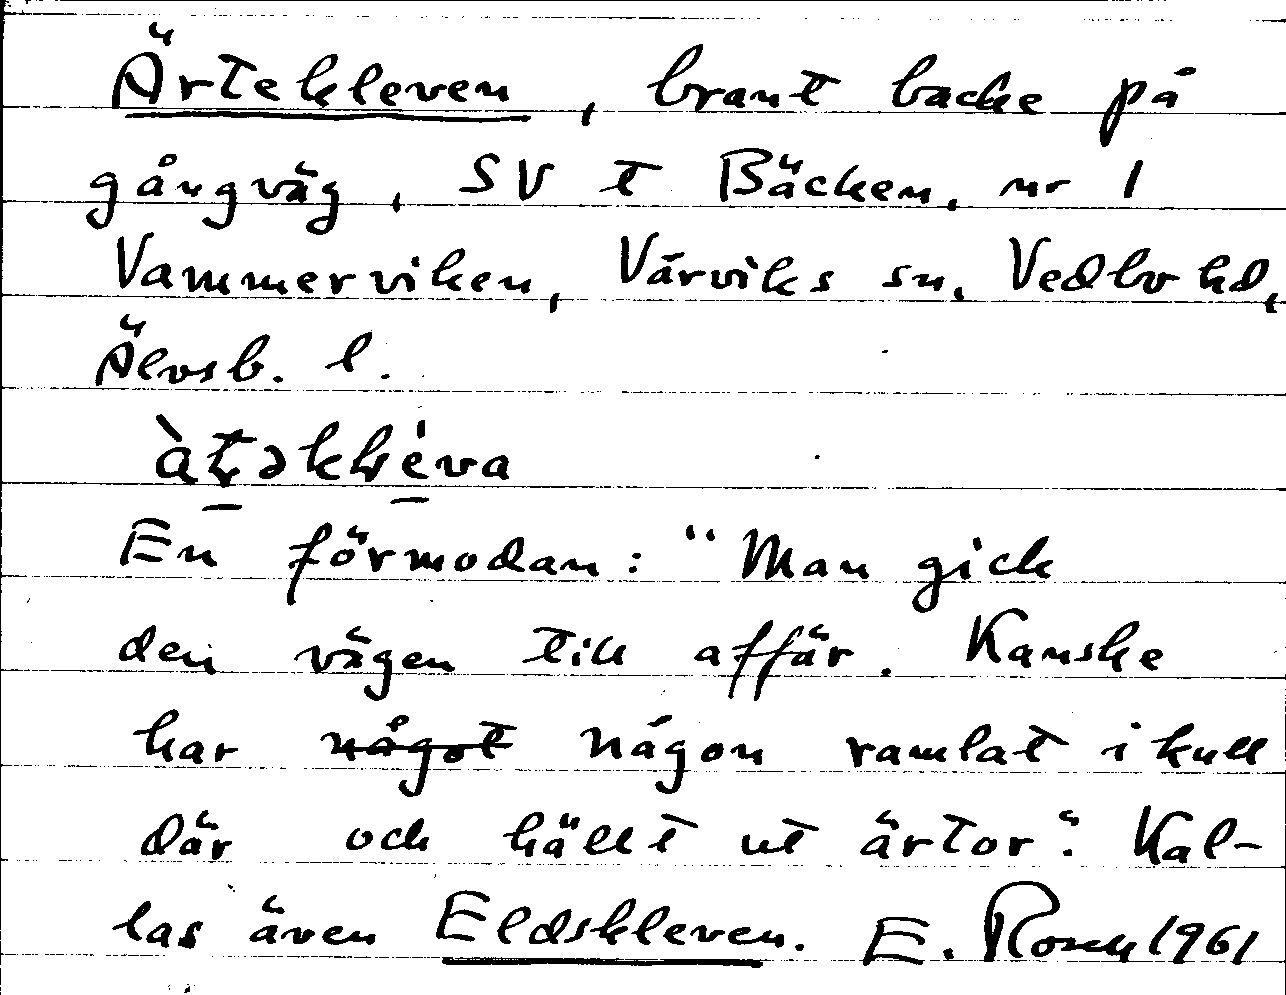 Ärtekleven, brant backe på
gångväg, SV t Bäcken, nr 1
Vammerviken, Värviks sn, Vedbo hd,
Älvsb. l.
En förmodan: "Man gick
den vägen till affär. Kanske
har något någon ramlat ikull
där och hällt ut ärtor". Kal-
las även Eldskleven. E. Rosen 1961